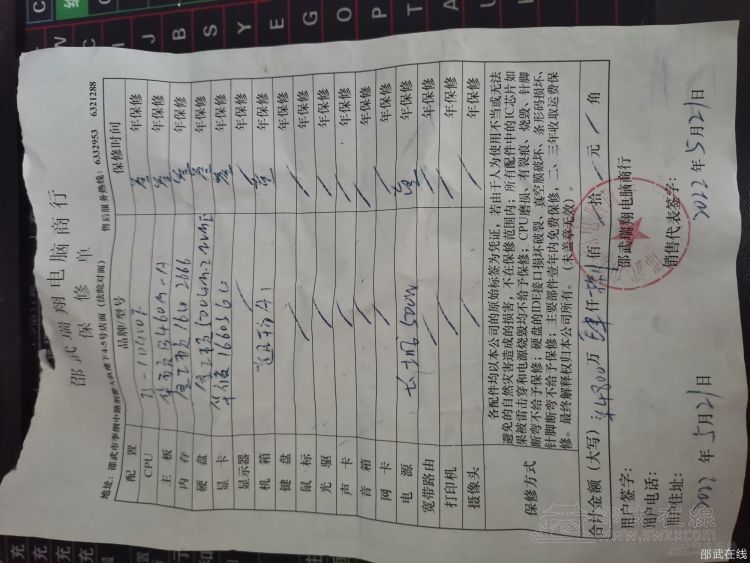 邵武瑞翔电脑商行
保修单
地址：邵武市李纲中路 4-5号店面（法院对面） 售后服务热线：6332953 6321288
配置 品牌/型号 保修时间
CPU i5-10400F 壹 年保修
主板 华硕 B460M-A 壹 年保修
内存 金士顿 16G 2666 壹 年保修
硬盘 金士顿 500G M.2 NVME 壹 年保修
显卡 华硕 1660S 6G 壹 年保修
显示器 / 年保修
机箱 壹 年保修
键盘 / / 年保修
鼠标 / / 年保修
光驱 / / 年保修
声卡 / / 年保修
音箱 / / 年保修
网卡 / / 年保修
电源 长城 500W 壹 年保修
宽带路由 / / 年保修
打印机 / / 年保修
摄像头 / / 年保修
保修方式
各配件均以本公司的原始标签为凭证，若由于人为使用不当或无法
避免的自然灾害造成的损害，不在保修范围内；所有配件中的IC芯片如
果被雷击穿和电源烧毁均不给予保修；CPU磨损、有裂痕、烧毁、针脚
断弯不给予保修；硬盘的IDE接口损坏破裂、真空膜破坏、条形码损坏、
针脚断弯不给予保修；主要部件壹年内免费保修，二、三年收取运费保
修。最终解释权归本公司所有。（未盖章无效）。
合计金额（大写）¥4800 万 肆 仟 捌 佰 / 拾 / 元 / 角
用户签字： 邵武瑞翔电脑商行
用户电话： 销售代表签字：
用户住址：
2022 年 5月21日 2022 年 5月21日
邵武在线
www.swzx.cn
邵武在线